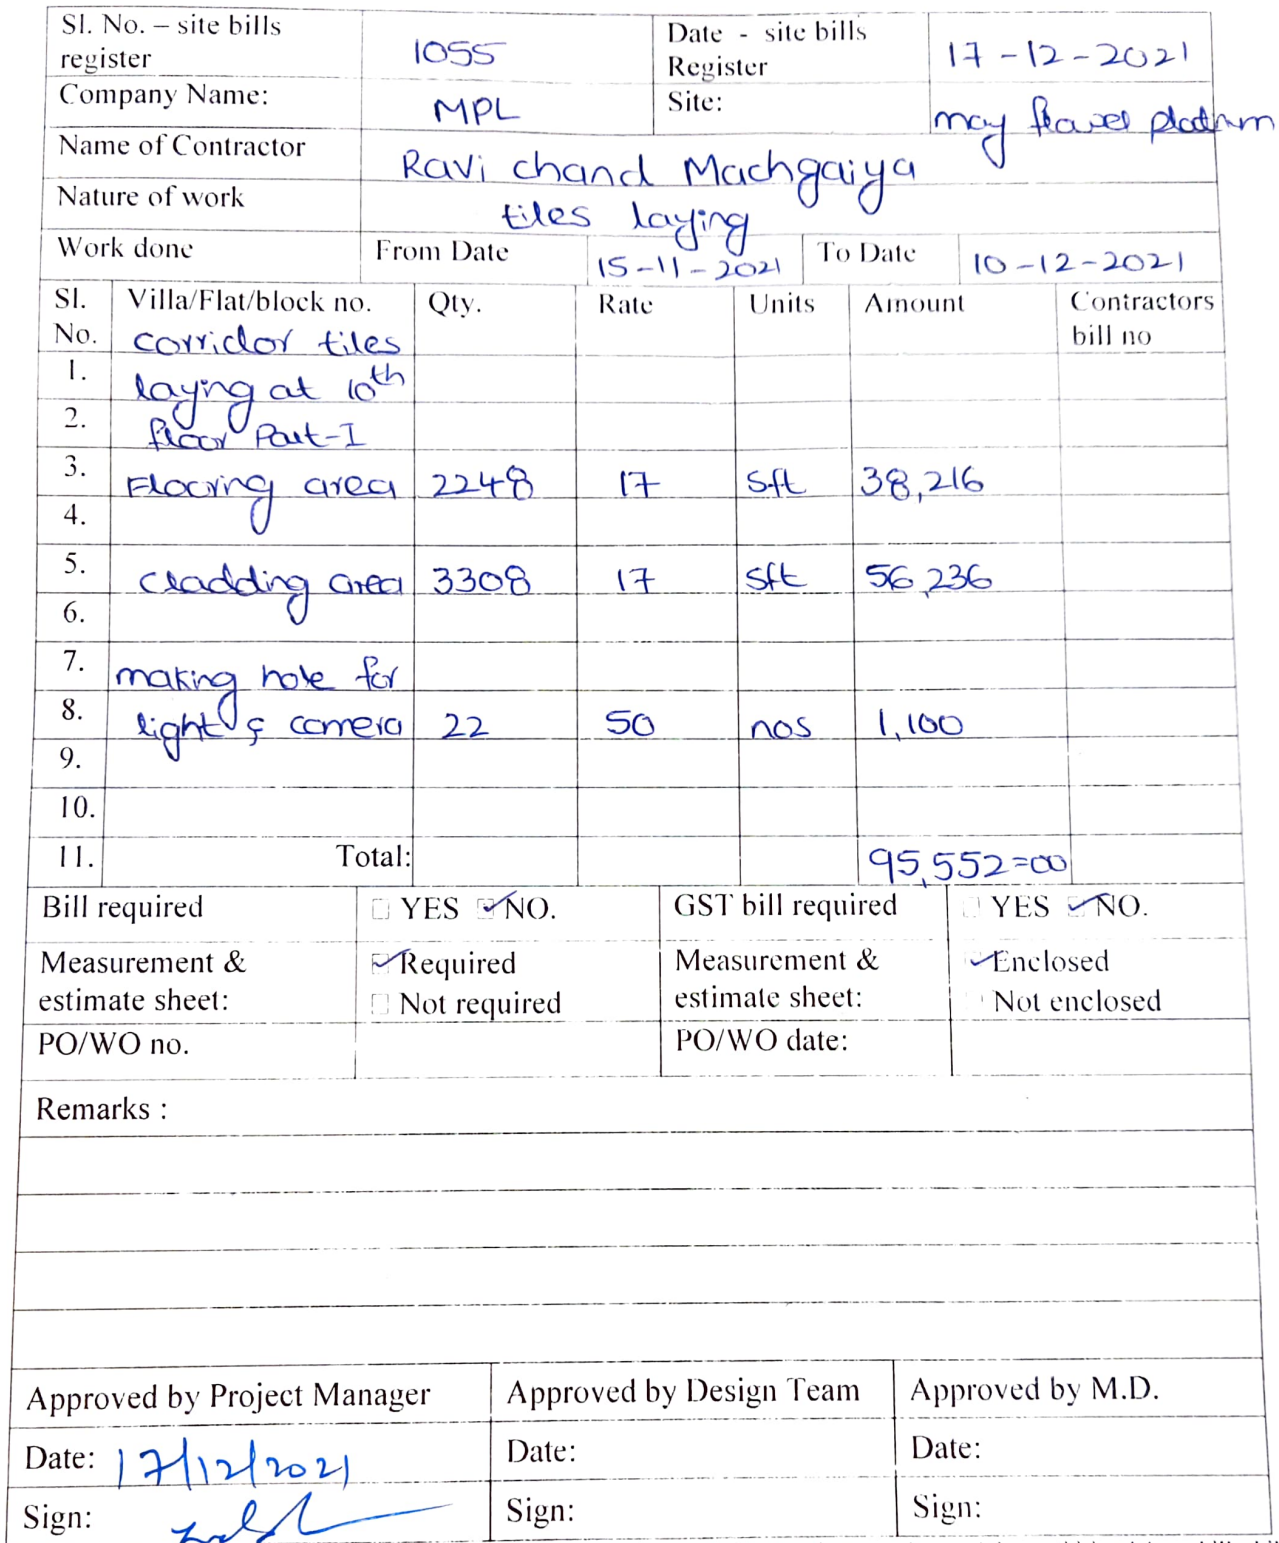 Sl. No. – site bills register 1055 Date - site bills Register 17-12-2021
Company Name: MPL Site: may flower platinum
Name of Contractor Ravi chand Machgaiya
Nature of work tiles laying
Work done From Date 15-11-2021 To Date 10-12-2021
Sl. No. Villa/Flat/block no. Qty. Rate Units Amount Contractors bill no
corridor tiles
1. laying at 10th
2. floor Part-I
3. Flooring area 2248 17 sft 38,216
4.
5. cladding area 3308 17 sft 56,236
6.
7. making hole for
8. light & camera 22 50 nos 1,100
9.
10.
11. Total: 95,552=00
Bill required YES NO. GST bill required YES NO.
Measurement & estimate sheet: Required Not required Measurement & estimate sheet: Enclosed Not enclosed
PO/WO no. PO/WO date:
Remarks :
Approved by Project Manager Approved by Design Team Approved by M.D.
Date: 17/12/2021 Date: Date:
Sign: Sign: Sign: